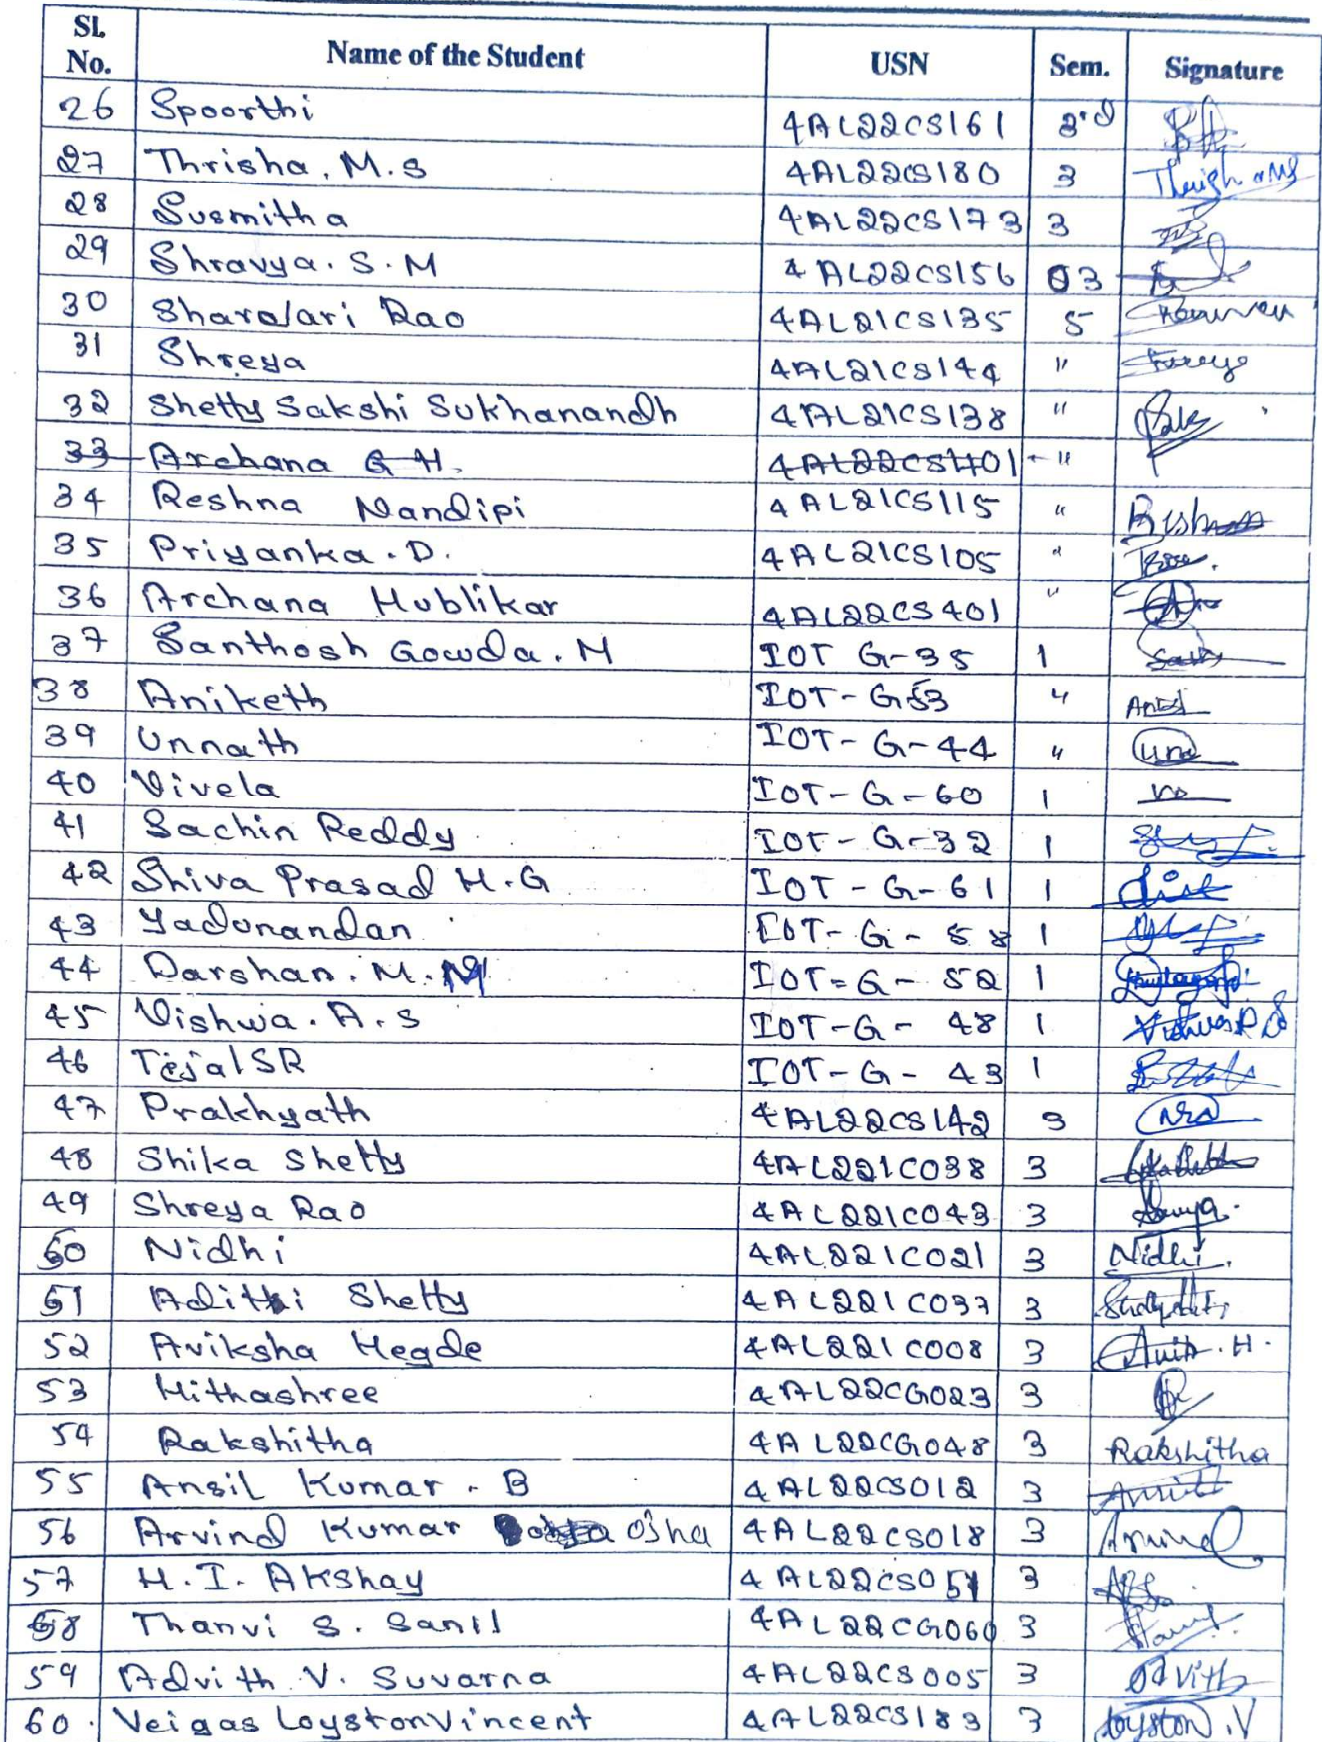 Sl. No. Name of the Student USN Sem. Signature
26 Spoorthi 4AL22CS161 3rd
27 Thrisha. M.S 4AL22CS180 3
28 Susmitha 4AL22CS173 3
29 Shravya. S. M 4AL22CS156 03
30 Sharalari Rao 4AL21CS135 5
31 Shreya 4AL21CS144 "
32 Shetty Sakshi Sukhanandh 4AL21CS138 "
33 Archana G H. 4AL22CS401 "
34 Reshna Nandipi 4AL21CS115 "
35 Priyanka. D. 4AL21CS105 "
36 Archana Hublikar 4AL22CS401 "
37 Santhosh Gowda. M IOT G-35 1
38 Aniketh IOT-G53 "
39 Unnath IOT-G-44 "
40 Vivela IOT-G-60 1
41 Sachin Reddy IOT-G-32 1
42 Shiva Prasad H.G IOT-G-61 1
43 Yadunandan IOT-G-58 1
44 Darshan. M. M IOT-G-52 1
45 Vishwa. A. S IOT-G-48 1
46 Tejal SR IOT-G-43 1
47 Prakhyath 4AL22CS142 3
48 Shika Shetty 4AL22IC038 3
49 Shreya Rao 4AL22IC043 3
50 Nidhi 4AL22IC021 3 Nidhi.
51 Adithi Shetty 4AL22IC037 3
52 Aviksha Hegde 4AL22IC008 3
53 Hithashree 4AL22CG023 3
54 Rakshitha 4AL22CG048 3 Rakshitha
55 Ansil Kumar. B 4AL22CS012 3
56 Arvind Kumar Ojha 4AL22CS018 3 Arvind
57 H. I. Akshay 4AL22CS051 3
58 Thanvi S. Sanil 4AL22CG060 3
59 Advith V. Suvarna 4AL22CS005 3 Advith
60. Veigas Loyston Vincent 4AL22CS183 3 Loyston. V